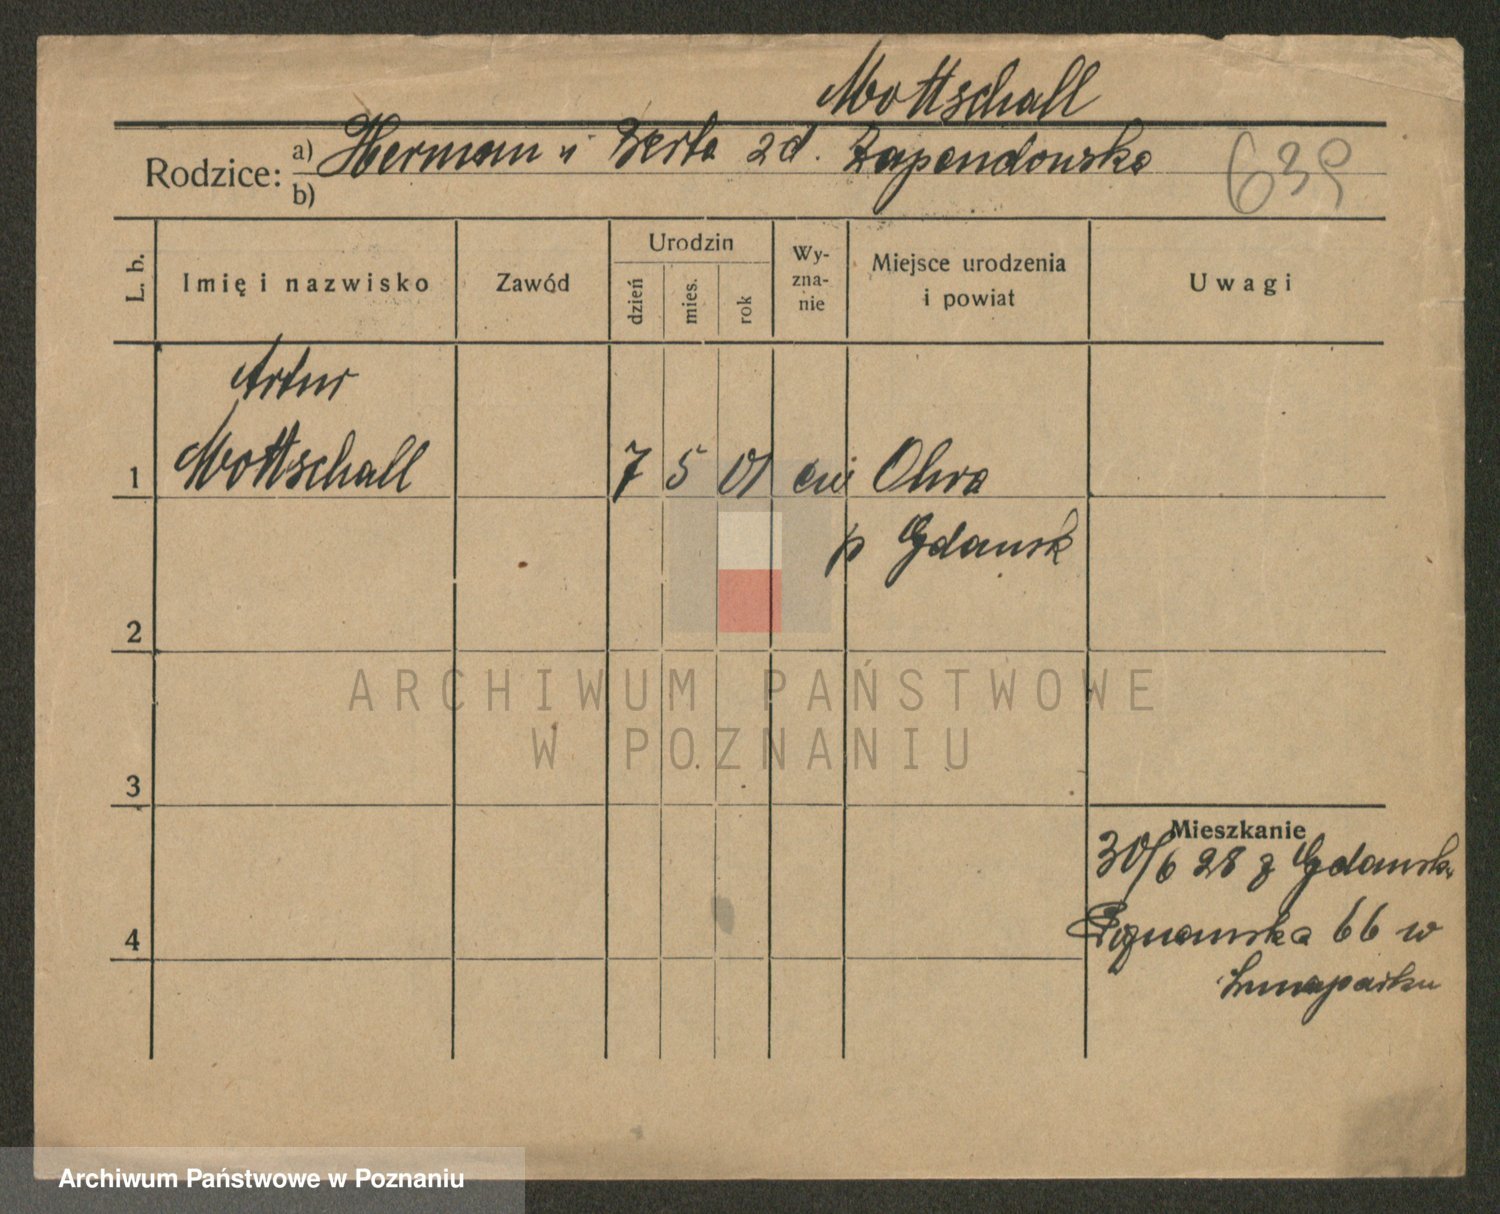 Mottschall
Rodzice: a) Herman i Berta zd. Zapendowska
b)
639
L. b.
Imię i nazwisko
Zawód
Urodzin
dzień
mies.
rok
Wy-
zna-
nie
Miejsce urodzenia
i powiat
Uwagi
Artur
1 Mottschall 7 5 01 ew Oliwa
p Gdańsk
2
ARCHIWUM PAŃSTWOWE
W POZNANIU
3
Mieszkanie
30/6 28 z Gdańska
4
66 w
Lunaparku
Archiwum Państwowe w Poznaniu